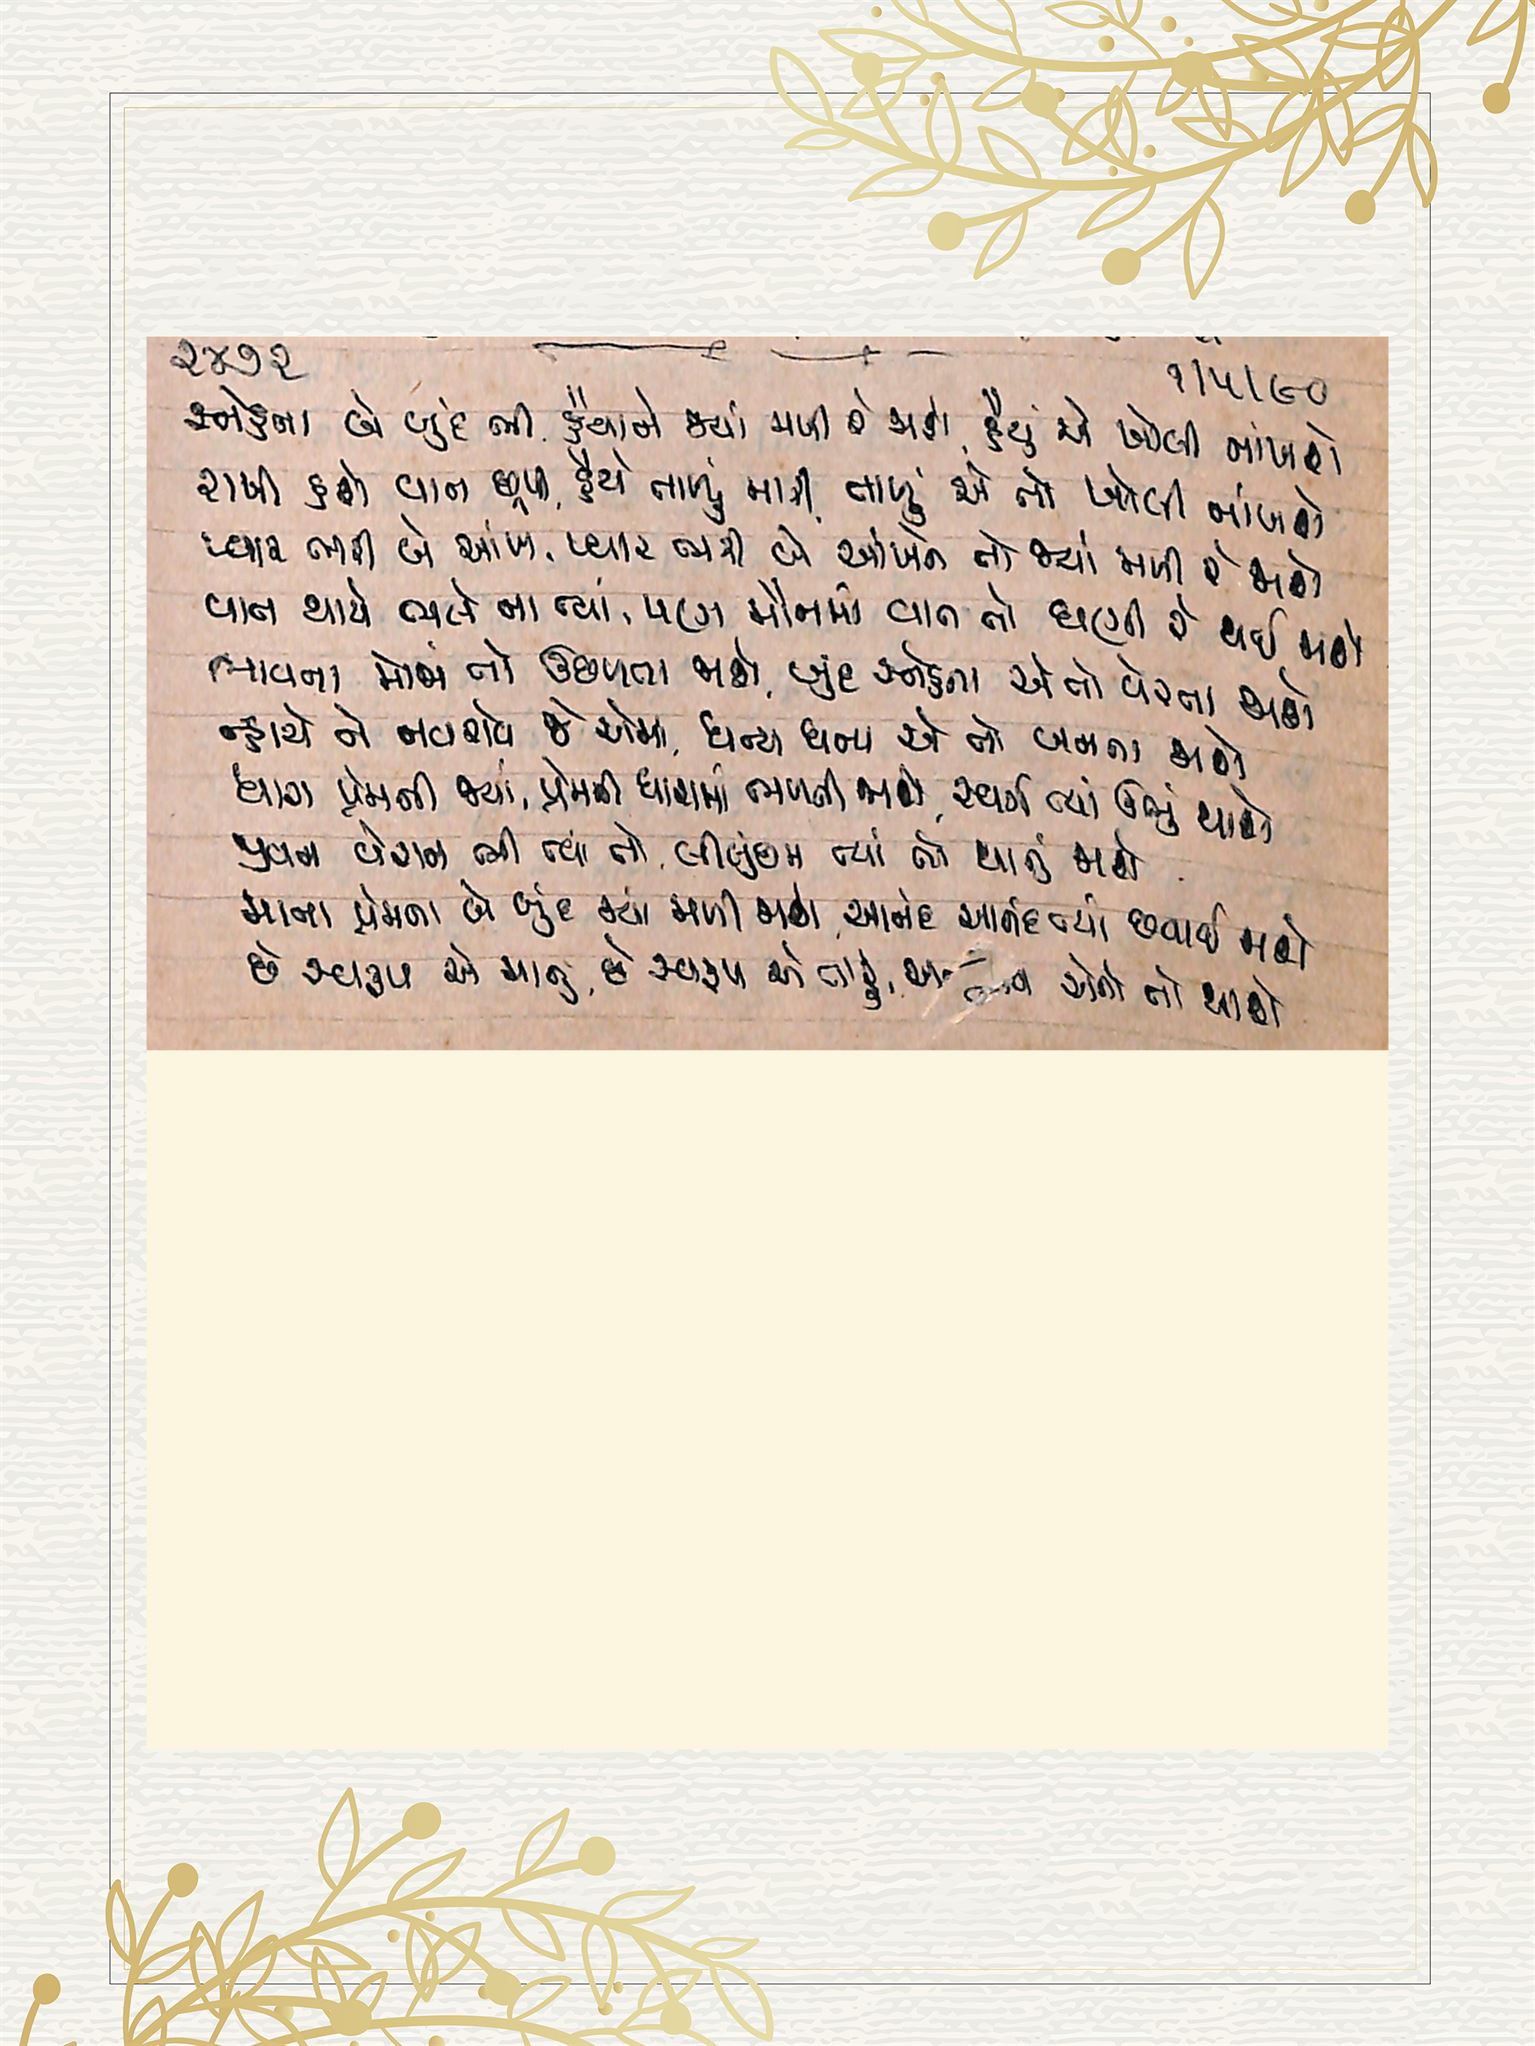 ૨૪૭૨
૧/૫/૯૦
સ્નેહના બે બુંદ ભી હૈયાને જ્યાં મળી રે જાશે, હૈયું એ ખોલી નાંખશે
રાખી હશે વાત છૂપી, હૈયે તાળું મારી, તાળું એ તો ખોલી નાંખશે
પ્યાર ભરી બે આંખ, પ્યાર ભરી બે આંખને તો જ્યાં મળી રે જાશે
વાત થાયે ભલે ના ત્યાં, પણ મૌનમાં વાત તો ઘણી રે થઈ જાશે
ભાવના મોજાં તો ઉછળતા જાશે, બુંદ સ્નેહના એ તો વેરતા જાશે
ન્હાયે ને નવરાવે જે એમાં, ધન્ય ધન્ય એ તો બનતા જાશે
ધારા પ્રેમની જ્યાં, પ્રેમની ધારામાં ભળતી જાશે, સ્વર્ગ ત્યાં ઉભું થાશે
જીવન વેરાન ભી ત્યાં તો, લીલુંછમ ત્યાં તો થાતું જાશે
માના પ્રેમના બે બુંદ જ્યાં મળી જાશે, આનંદ આનંદ ત્યાં છવાઈ જાશે
છે સ્વરૂપ એ માનું, છે સ્વરૂપ એ તારું, એનો તો થાશે